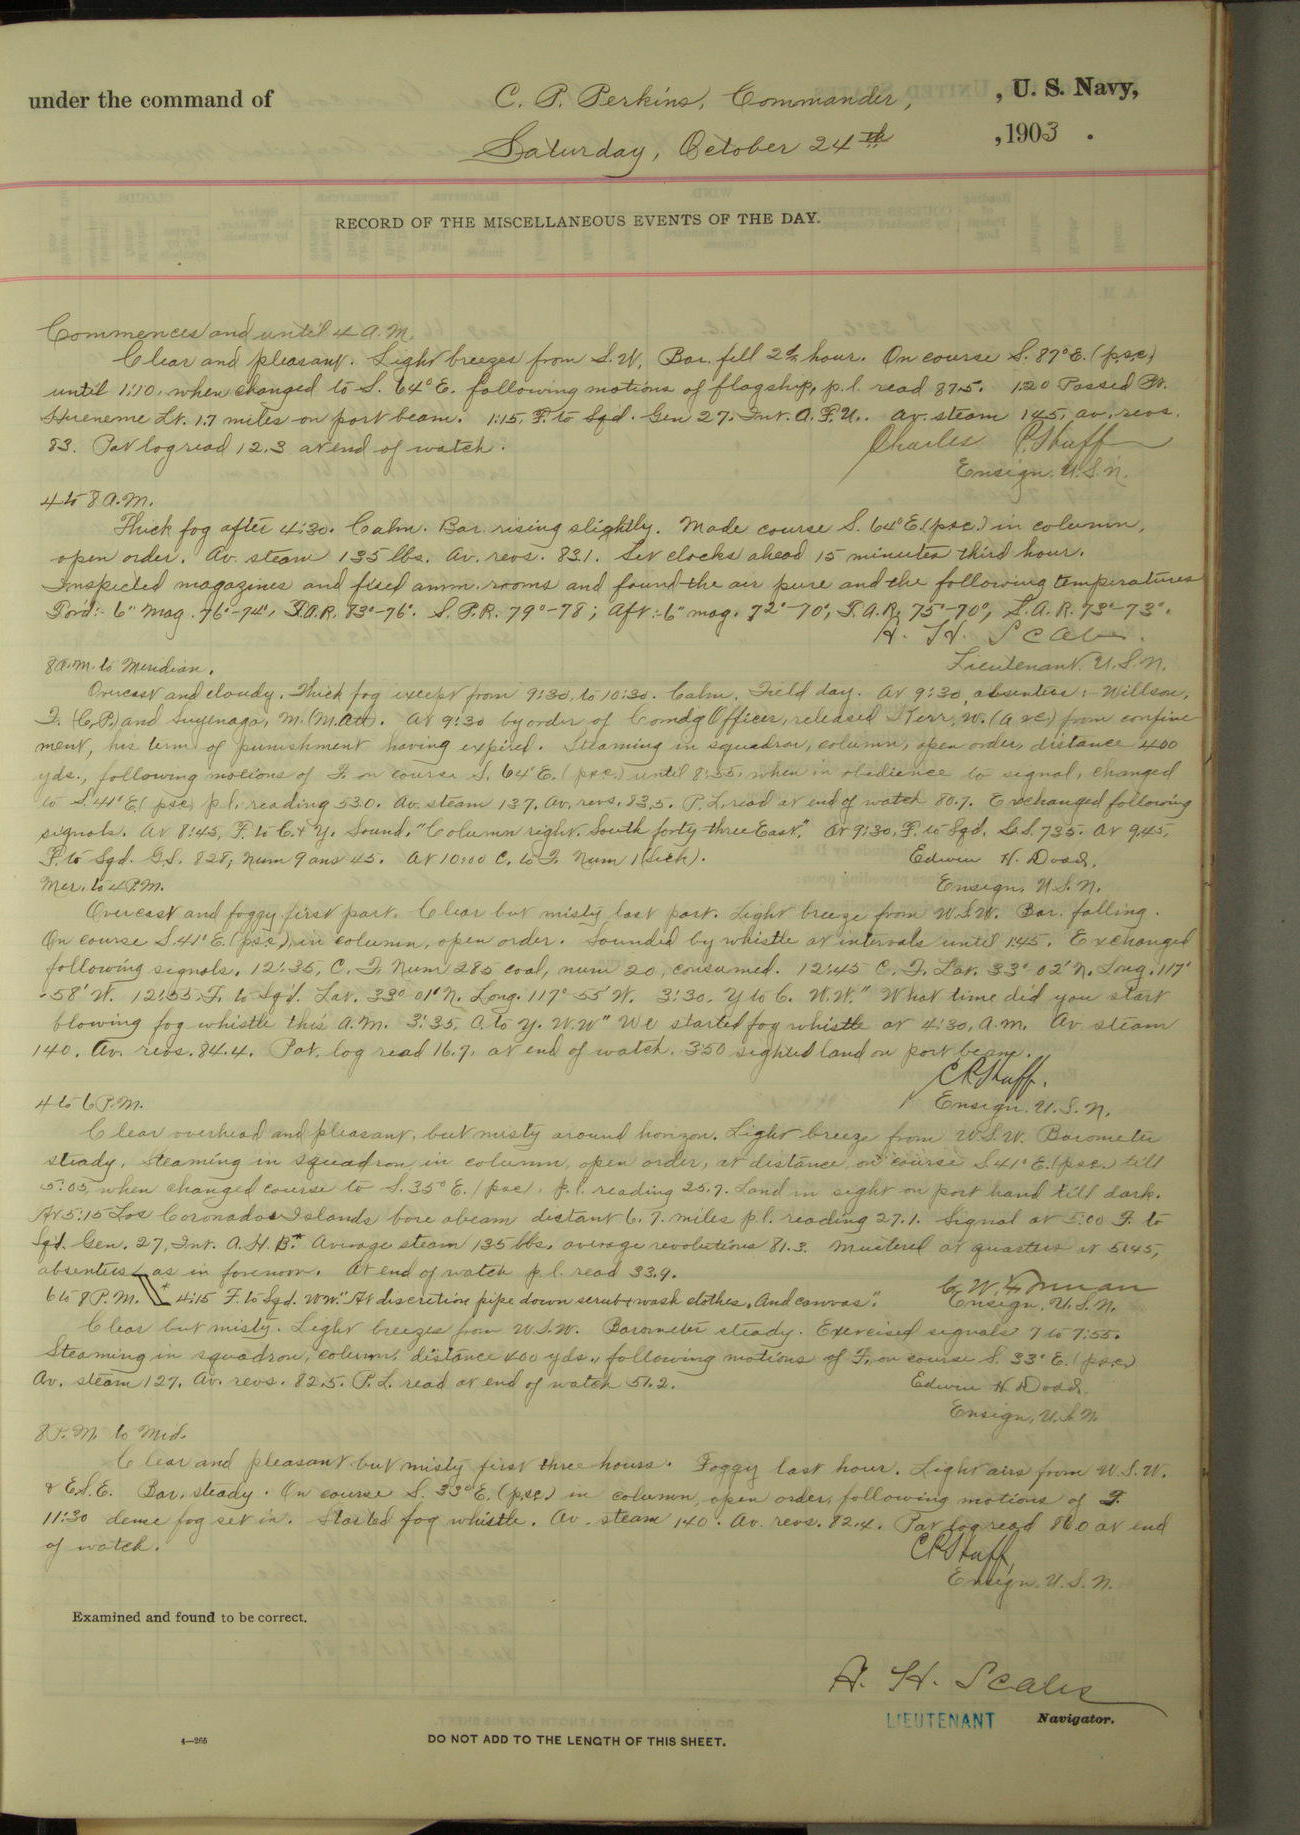 under the command of C. P. Perkins, Commander, , U. S. Navy,
Saturday, October 24th ,1903 .
RECORD OF THE MISCELLANEOUS EVENTS OF THE DAY.
Commences and until 4 A.M.
Clear and pleasant. Light breezes from S.W. Bar. fell 2d hour. On course S. 87° E. (p.s.c.)
until 1:10, when changed to S. 64° E. following motions of flagship, p.l. read 87.5. 1:20 Passed Pt.
Hueneme Lt. 1.7 miles on port beam. 1:15, F. to Sqd. Gen 27. Int. A.F.U.. Av. steam 145, av. revs.
83. Pat log read 12.3 at end of watch.
Charles
Ensign, U.S.N.
4 to 8 A.M.
Thick fog after 4:30. Calm. Bar. rising slightly. Made course S. 64° E. (psc.) in column,
open order. Av. steam 135 lbs. Av. revs. 83.1. Set clocks ahead 15 minutes third hour.
Inspected magazines and fixed amm. rooms and found the air pure and the following temperatures
Ford:- 6" Mag. 76°-74°, F.A.R. 73°-76°. S.P.R. 79°-78; Aft:- 6" mag. 72°-70°, F.A.R. 75°-70°, S.A.R. 73°-73°.
A. H. Scales
Lieutenant. U.S.N.
8 A.M. to Meridian.
Overcast and cloudy. Thick fog except from 9:30, to 10:30. Calm. Field day. At 9:30, absentees:- Willson,
F. (C.P.) and Suyenaga, M. (M.Att). At 9:30 by order of Comdg Officer, released Kerr, W. from confine
ment, his term of punishment having expired. Steaming in squadron, column, open order, distance 400
yds., following motions of F. on course S. 64° E. (psc.) until 8:55, when in obedience to signal, changed
to S. 41° E. (psc) p.l. reading 53.0. Av. steam 137. Av. revs. 83.5. P.L. read at end of watch 80.7. Exchanged following
signals. At 8:45, F. to C. & Y. Sound. "Column right. South forty three East." At 9:30, F. to Sqd. G.S. 735. At 9:45,
F. to Sqd. G.S. 828, Num 9 ans 45. At 10:00 C. to F. Num 1 (Sick).
Edwin H. Dodd.
Ensign, U.S.N.
Mer. to 4 P.M.
Overcast and foggy first part. Clear but misty last part. Light breeze from W.S.W. Bar. falling.
On course S. 41° E. (psc.), in column, open order. Sounded by whistle at intervals until 1:45. Exchanged
following signals. 12:35, C. F. Num 285 coal, num 20, consumed. 12:45 C. F. Lat. 33° 02' N. Long. 117°
-58' W. 12:55. F. to Sqd. Lat. 33° 01' N. Long. 117° 55' W. 3:30. Y to C. W.W." What time did you start
blowing fog whistle this A.M. 3:35, C. to Y. W.W" We started fog whistle at 4:30, A.M. Av. steam
140. Av. revs. 84.4. Pat. log read 16.7, at end of watch. 3:50 sighted land on port beam.
Ensign. U.S.N.
4 to 6 P.M.
Clear overhead and pleasant, but misty around horizon. Light breeze from W.S.W. Barometer
steady. Steaming in squadron, in column, open order, at distance, on course S. 41° E. (psc.) till
5:05, when changed course to S. 35° E. (psc). p.l. reading 25.7. Land in sight on port hand till dark.
At 5:15 Los Coronados Islands bore abeam distant 6.7. miles p.l. reading 27.1. Signal at 5:00 F. to
Sqd. Gen. 27, Int. A.H.B.* Average steam 135 lbs. average revolutions 81.3. Mustered at quarters at 5:45,
absentees as in forenoon. At end of watch p.l. read 33.9.
Ensign, U.S.N.
6 to 8 P.M. * 4:15 F. to Sqd. WW. "At discretion pipe down scrub & wash clothes. And canvas".
Clear but misty. Light breezes from W.S.W. Barometer steady. Exercised signals 7 to 7:55.
Steaming in squadron, column, distance 400 yds., following motions of F. on course S. 33° E. (psc)
Av. steam 127. Av. revs. 82.5. P.L. read at end of watch 51.2.
Edwin H. Dodd.
Ensign, U.S.N.
8 P.M. to Mid.
Clear and pleasant but misty first three hours. Foggy last hour. Light airs from W.S.W.
& E.S.E. Bar. steady. On course S. 33° E. (p.s.c.) in column, open order, following motions of F.
11:30 dense fog set in. Started fog whistle. Av. steam 140. Av. revs. 82.4. Pat log read 86.0 at end
of watch.
Ensign. U.S.N.
Examined and found to be correct.
A. H. Scales
LIEUTENANT Navigator.
4—266 DO NOT ADD TO THE LENGTH OF THIS SHEET.